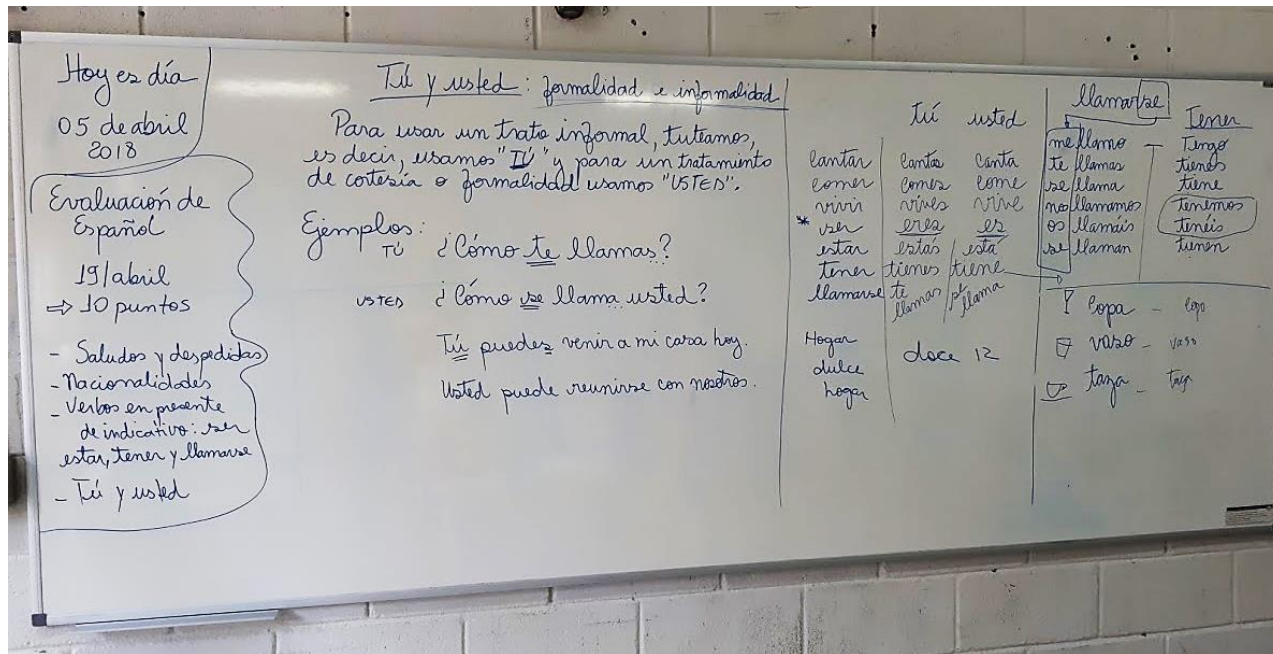 Hoy es día
05 de abril
2018
Evaluación de
Español
19/abril
⇒ 10 puntos
- Saludos y despedidas
- Nacionalidades
- Verbos en presente
de indicativo: ser
estar, tener y llamarse
- Tú y usted
Tú y usted: formalidad e informalidad
Para usar un trato informal, tuteamos,
es decir, usamos "TÚ" y para un tratamiento
de cortesía o formalidad usamos "USTED".
Ejemplos:
TÚ ¿Cómo te llamas?
USTED ¿Cómo se llama usted?
Tú puedes venir a mi casa hoy.
Usted puede reunirse con nosotros.
tú usted
cantar cantas canta
comer comes come
vivir vives vive
* ser eres es
estar estás está
tener tienes tiene
llamarse te llamas se llama
Hogar
dulce
hogar
doce 12
llamarse Tener
me llamo Tengo
te llamas tienes
se llama tiene
nos llamamos tenemos
os llamáis tenéis
se llaman tienen
copa - copo
vaso - vaso
taza -